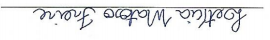 Letícia Matoso Freire